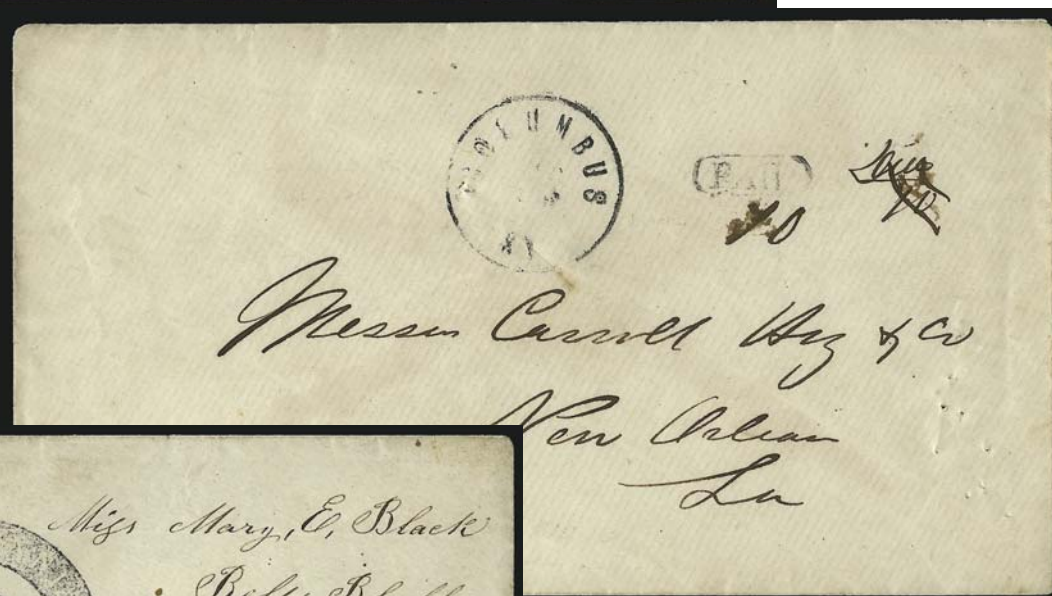 COLUMBUS
KY
PAID
Due
10
10
Messrs Carroll Hoy & Co
New Orleans
La
Miss Mary, E, Black